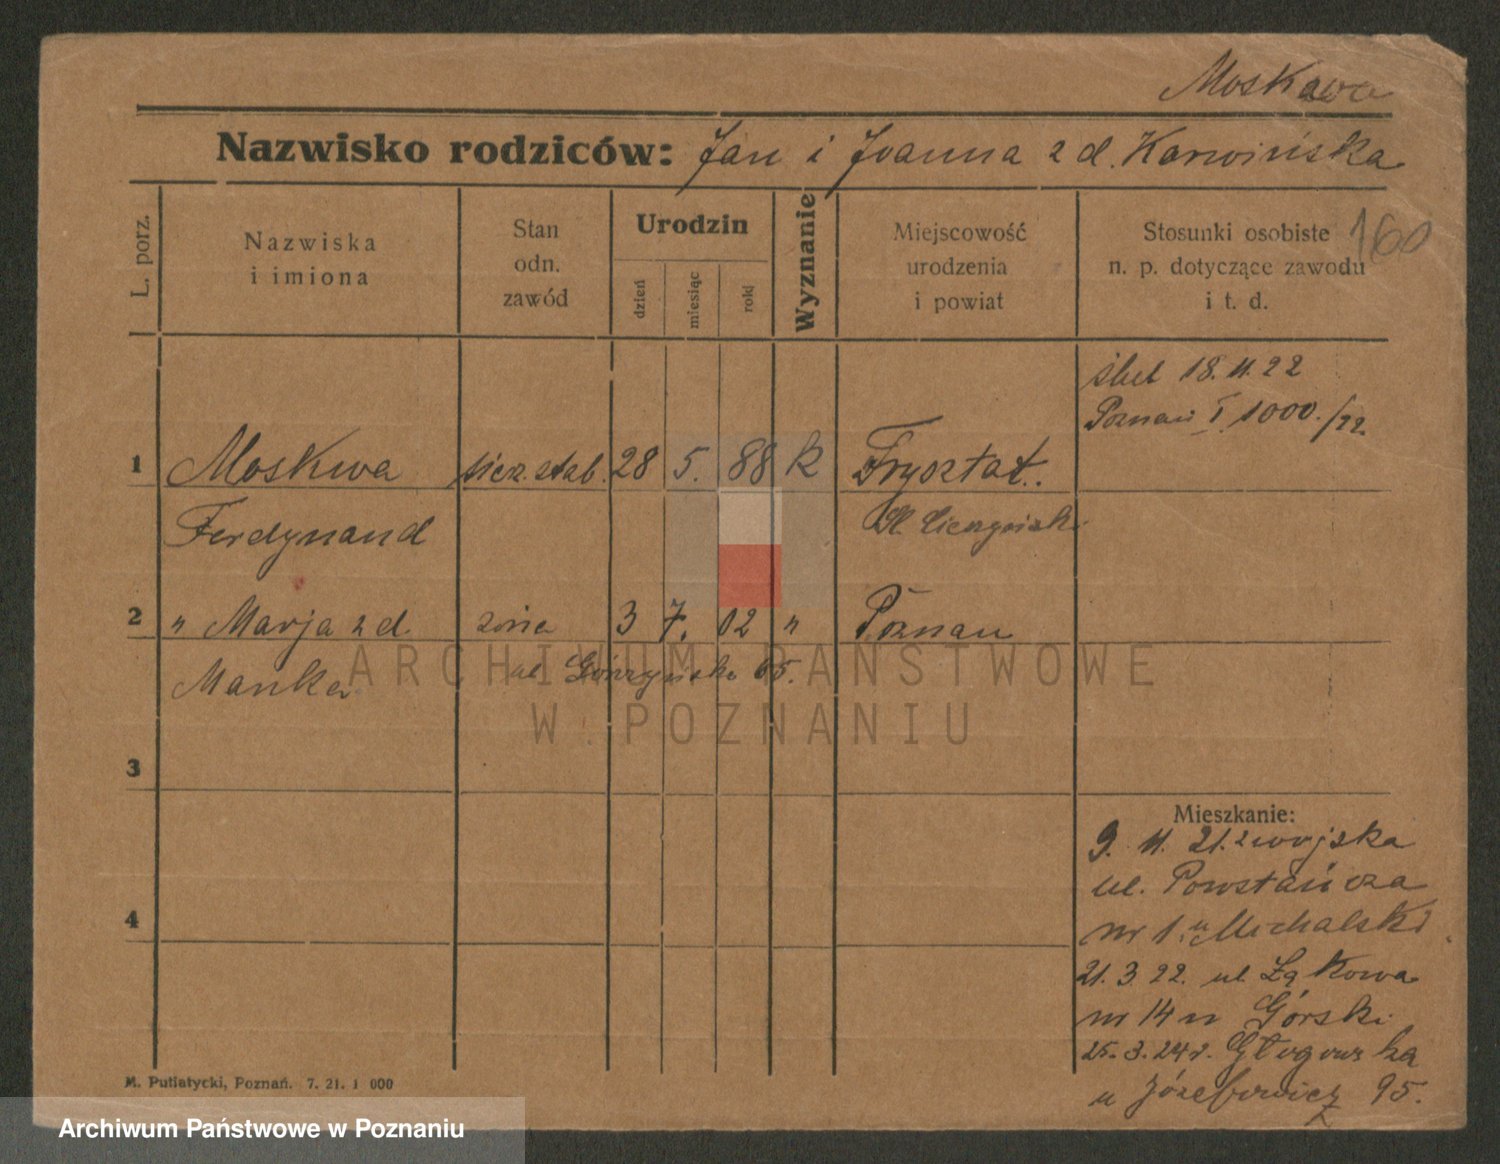 Moskwa
Nazwisko rodziców: Jan i Joanna z d. Karwińska
160
L. porz.
Nazwiska
i imiona
Stan
odn.
zawód
Urodzin
dzień
miesiąc
rok
Wyznanie
Miejscowość
urodzenia
i powiat
Stosunki osobiste
n. p. dotyczące zawodu
i t. d.
ślub 18.11.22
Poznań I 1000./22.
1 Moskwa sierż. stab. 28 5. 88 k Frysztat.
Ferdynand Śl. Cieszyński
2 " Marja z d. żona 3 7. 02 " Poznań
Manka ul. Górczyńska 65.
3
4
Mieszkanie:
9. 11. 21. z wojska
ul. Powstańcza
nr 1. u Michalski
21. 3. 22. ul Łąkowa
nr 14 u Górski
25. 3. 24 r. Głogowska
u Józefowicz 95.
M. Putiatycki, Poznań. 7. 21. 1 000
ARCHIWUM PAŃSTWOWE
W POZNANIU
Archiwum Państwowe w Poznaniu